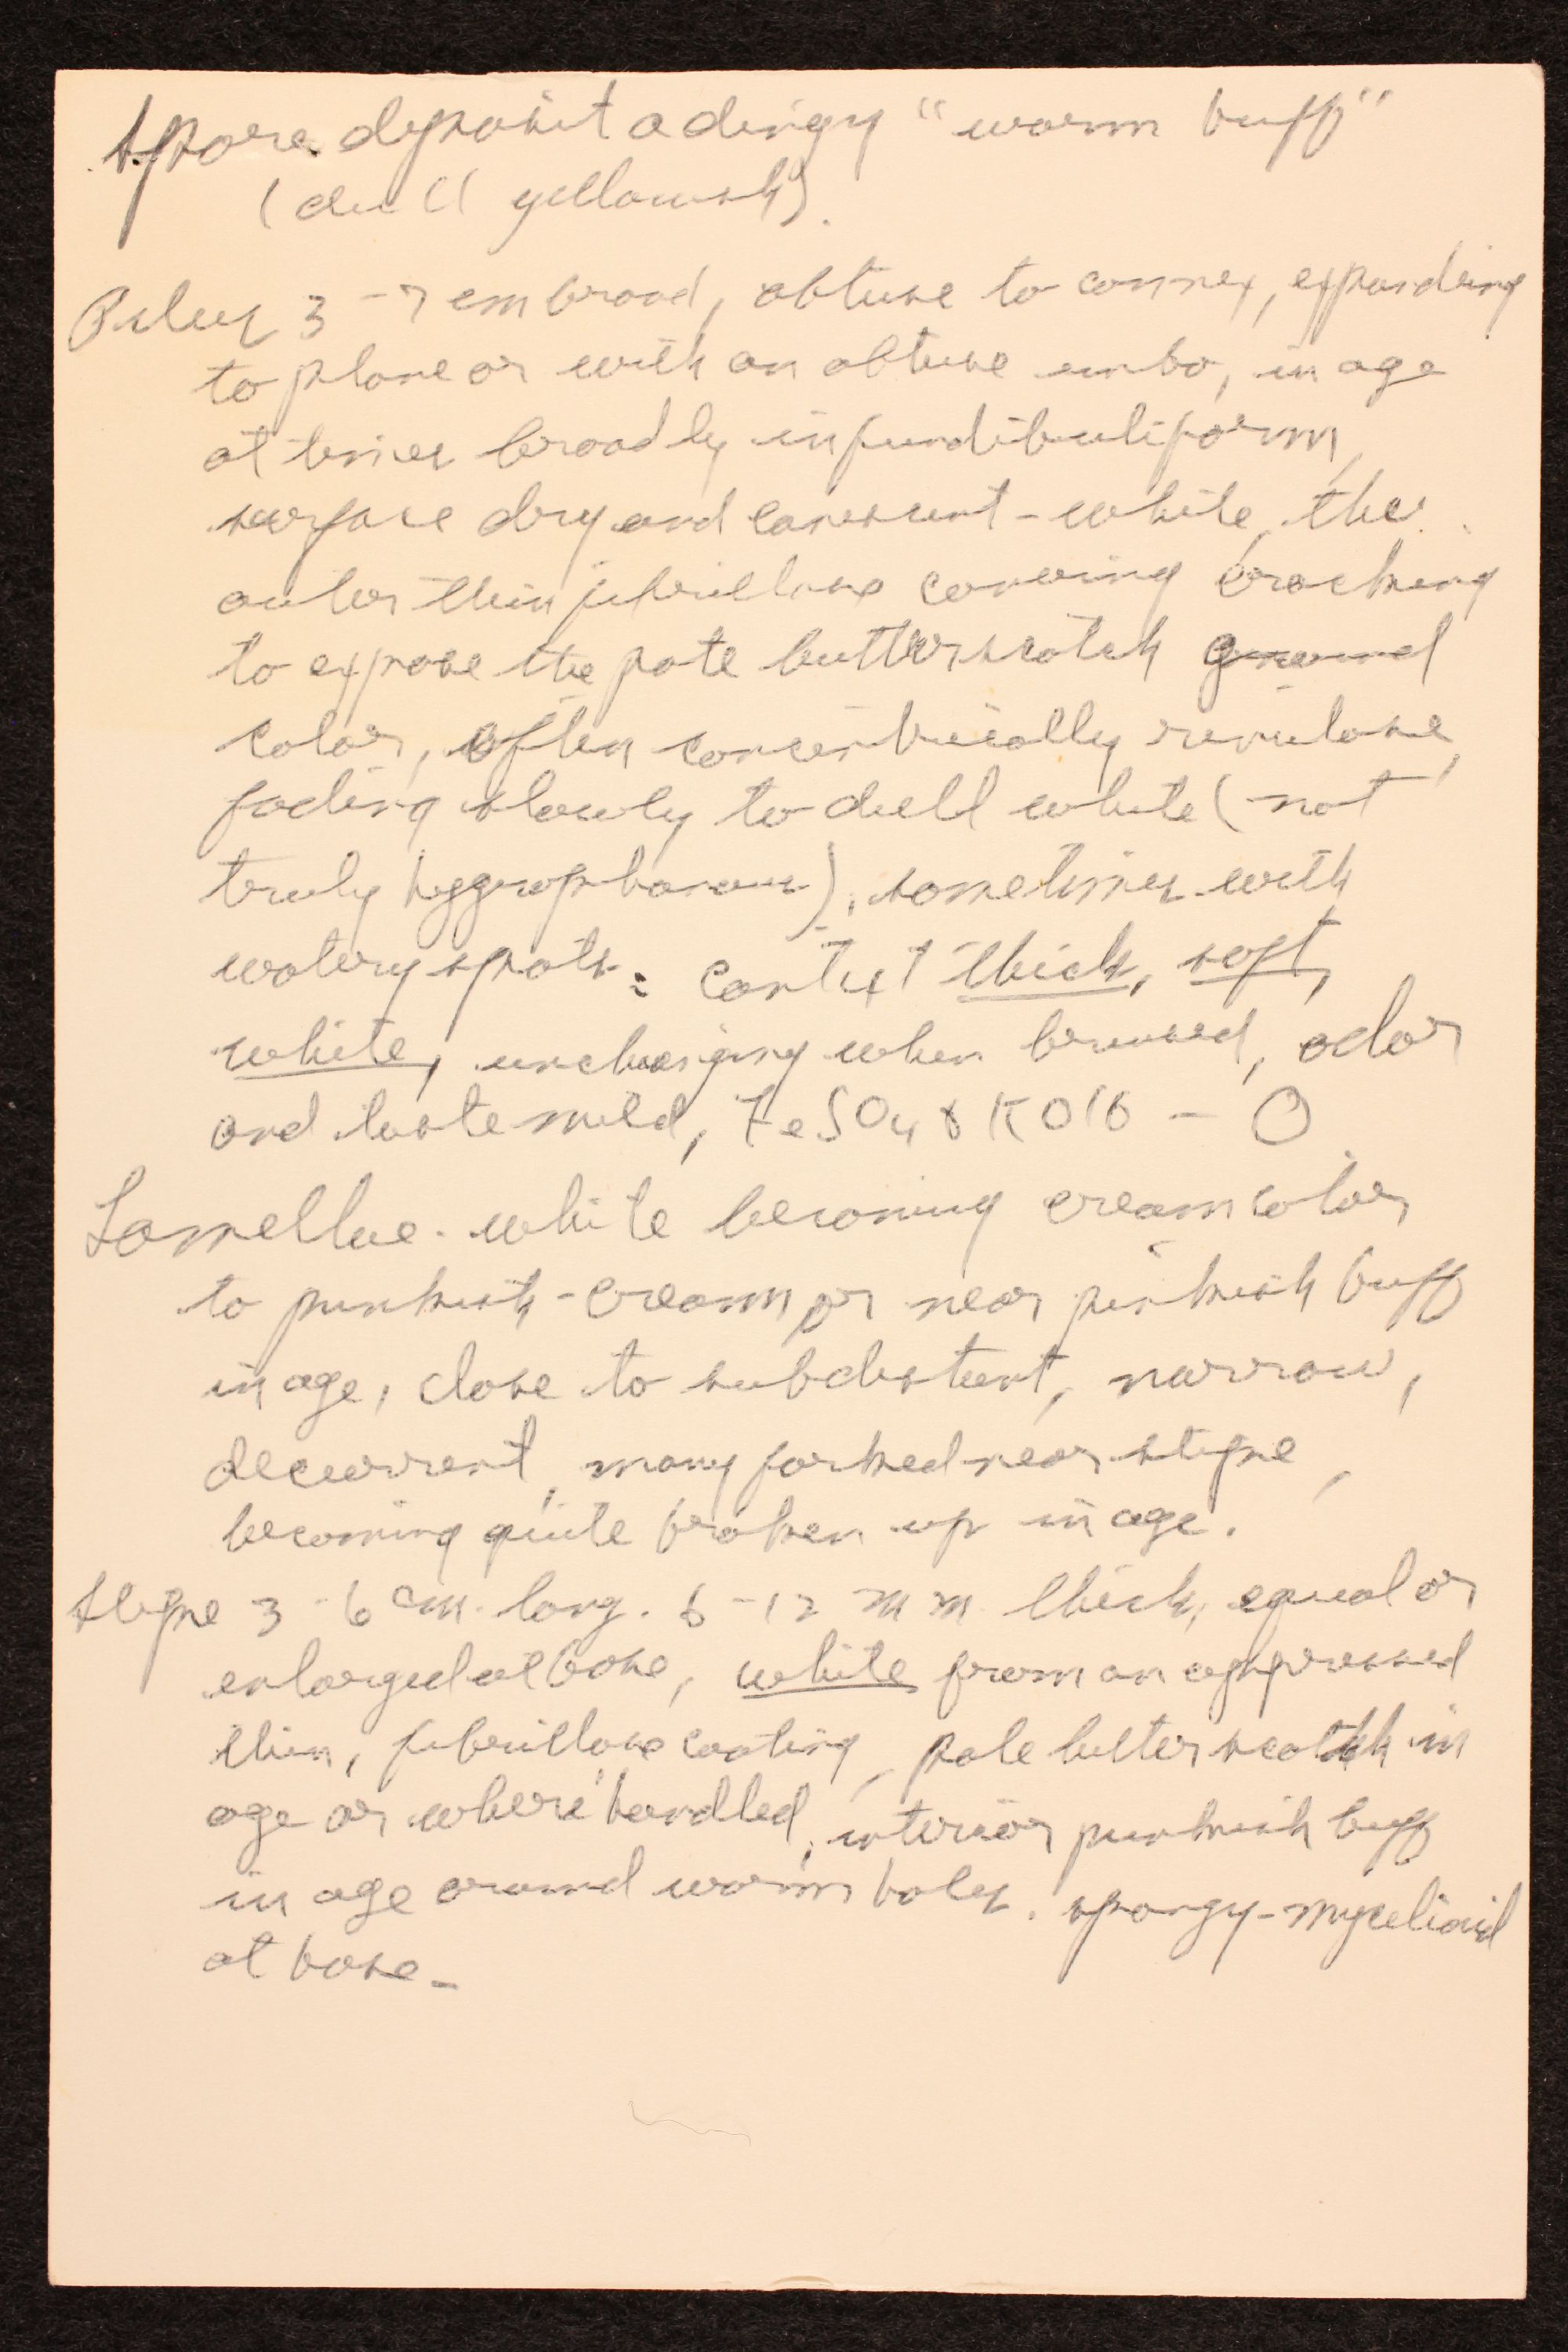 Spore deposit a dingy "warm buff"
(dull yellowish).
Pileus 3-7 cm broad, obtuse to convex, expanding
to plane or with an obtuse umbo, in age
at times broadly infundibuliform,
surface dry and canescent-white, the
outer thin fibrillose covering cracking
to expose the pale butterscotch ground
color, often concentrically rimulose,
fading slowly to dull white (not
truly hygrophanous), sometimes with
watery spots: context thick, soft,
white, unchanging when bruised, odor
and taste mild, FeSO4 & KOH - O
Lamellae white becoming cream color
to pinkish-cream or near pinkish buff
in age, close to subdistant, narrow,
decurrent, many forked near stipe,
becoming quite broken up in age.
Stipe 3-6 cm. long. 6-12 mm thick, equal or
enlarged at base, white from an appressed
thin, fibrillose coating, pale butterscotch in
age or where handled, interior pinkish buff
in age around worm holes. spongy-mycelioid
at base -